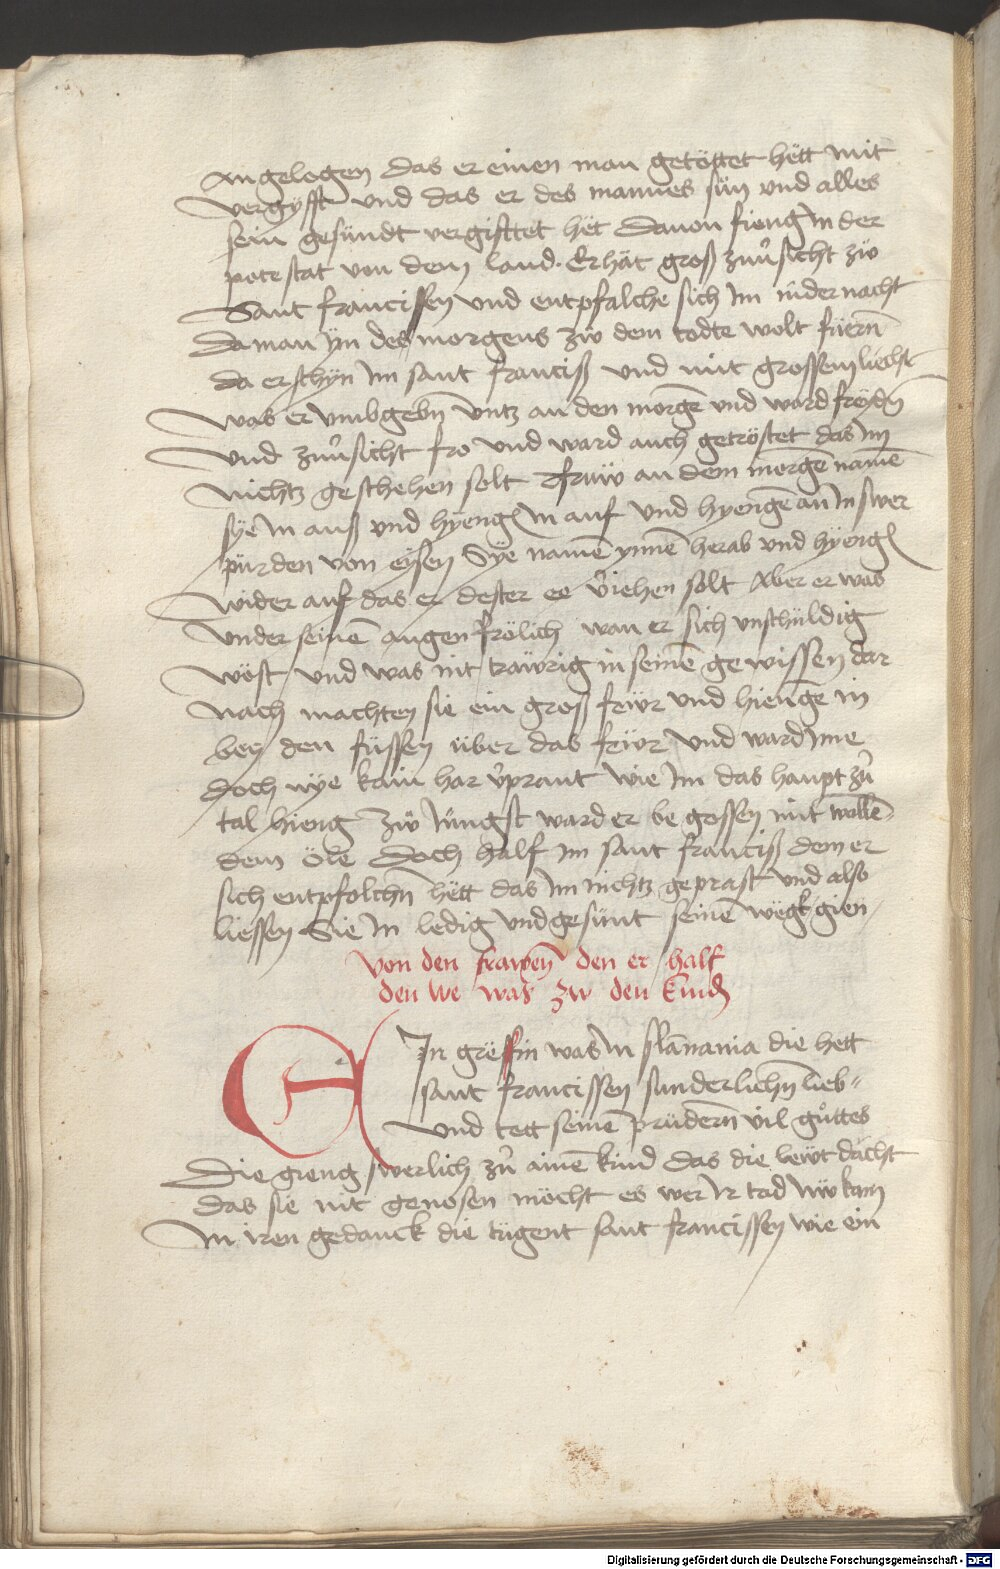 angelogen das er einen man getöttet hëtt mit
vergyfft und das er des mannes sün vnd alles
sein gesündt vergifttet hët Dauon fieng in der
potestat von dem land. Er hät groß zuu͛sicht zü
Sant francissen vnd entpfalche sich im in der nacht
Da man ÿn des morgens zü dem todte wolt füern̄
da erschÿn im sant franciß vnd mit grossem liecht
was er vmbgebn̄ vntz an den morgē vnd ward freydn̄
vnd zuu͛sicht fro vnd ward auch getröstet das im
nichtz geschehen solt Frwͤ an dem morgē namē
sÿe in auß vnd hÿengē in auf vnd hyengē an in swer
pürden von eÿsen Sÿe namē ÿnnē herab vnd hÿengē
wider auf das er dester ee v͛iehen solt Aber er was
vnder seinē augen frölich wan er sich vnschüldig
wöst vnd was nit traẅrig in seinē gewissen dar
nach machten sie ein groß feẅr vnd hiengē in
bey den füssen über das feẅr vnd ward ime
doch nÿe kain har v͛prant wie im das haupt zu͛
tal hieng zü jüngst ward er begossen mit wallē-
dem öle Doch half im sant franciß dem er
sich entpfolchn̄ hëtt das im nichtz geprast vnd also
liessen Sie in ledig vnd gesünt seinē wëgk gien
von den frawen̄ den er half
den we was zw den kinden̄
EIn gräffin was in sclauania die hett
sant francissen sunderlichn̄ lieb-
vnd tett seinē prüdern̄ vil gůttes
Die gieng swerlich zu͛ ainē kind das die lewt dächt
das sie nit genosen möcht es wer ir tod nw kam
in iren gedanck die tügent sant francissen wie ein
Digitalisierung gefördert durch die Deutsche Forschungsgemeinschaft - DFG